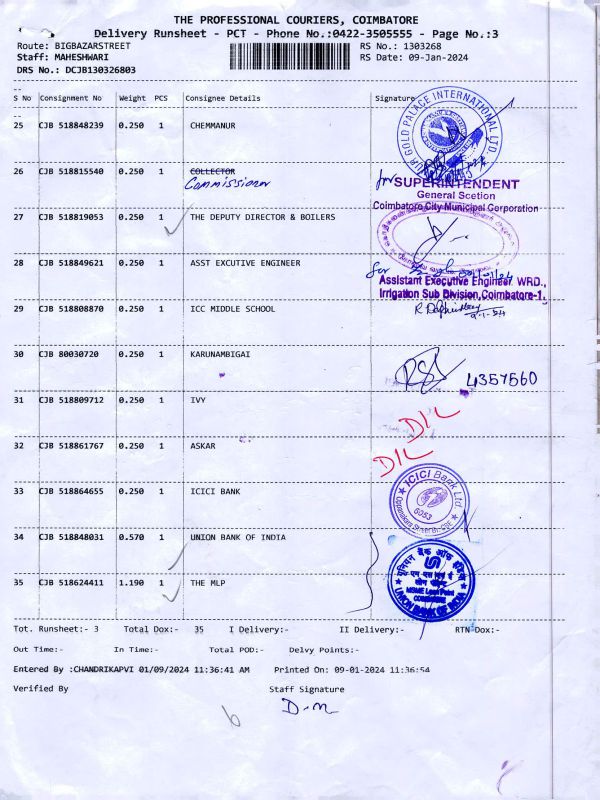 THE PROFESSIONAL COURIERS, COIMBATORE
Delivery Runsheet - PCT - Phone No.:0422-3505555 - Page No.:3
Route: BIGBAZARSTREET RS No.: 1303268
Staff: MAHESHWARI RS Date: 09-Jan-2024
DRS No.: DCJB130326803
S No Consignment No Weight PCS Consignee Details Signature
25 CJB 518848239 0.250 1 CHEMMANUR
GOLD PALACE INTERNATIONAL LTD.
26 CJB 518815540 0.250 1 COLLECTOR
Commissioner
for SUPERINTENDENT
General Scetion
Coimbatore City Municipal Corporation
27 CJB 518819053 0.250 1 THE DEPUTY DIRECTOR & BOILERS
28 CJB 518849621 0.250 1 ASST EXCUTIVE ENGINEER
for
Assistant Executive Engineer WRD.,
Irrigation Sub Division,Coimbatore-1.
29 CJB 518808870 0.250 1 ICC MIDDLE SCHOOL
30 CJB 80030720 0.250 1 KARUNAMBIGAI
4357560
31 CJB 518809712 0.250 1 IVY
D/L
32 CJB 518861767 0.250 1 ASKAR
D/L
33 CJB 518864655 0.250 1 ICICI BANK
ICICI Bank Ltd.
6053
34 CJB 518848031 0.570 1 UNION BANK OF INDIA
यूनियन बैंक ऑफ इंडिया
35 CJB 518624411 1.190 1 THE MLP
MSME Loan Point
COIMBATORE
UNION BANK OF INDIA
Tot. Runsheet:- 3 Total Dox:- 35 I Delivery:- II Delivery:- RTN Dox:-
Out Time:- In Time:- Total POD:- Delvy Points:-
Entered By :CHANDRIKAPVI 01/09/2024 11:36:41 AM Printed On: 09-01-2024 11:36:54
Verified By Staff Signature